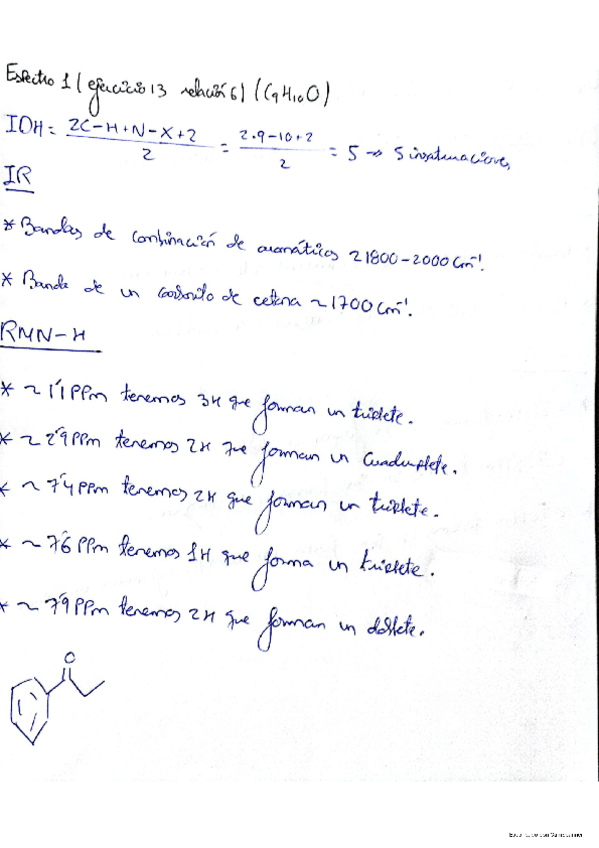 Espectro 1 (ejercicio 13 relación 6) (C9H10O)
IDH = 2C-H+N-X+2 / 2 = 2·9-10+2 / 2 = 5 → 5 insaturaciones
IR
* Bandas de combinación de aromáticos ~1800-2000 cm⁻¹.
* Banda de un carbonilo de cetona ~1700 cm⁻¹.
RMN-H
* ~ 1'1 PPm tenemos 3H que forman un triplete.
* ~ 2'9 PPm tenemos 2H que forman un cuadruplete.
* ~ 7'4 PPm tenemos 2H que forman un triplete.
* ~ 7'6 PPm tenemos 1H que forma un triplete.
* ~ 7'9 PPm tenemos 2H que forman un doblete.
O